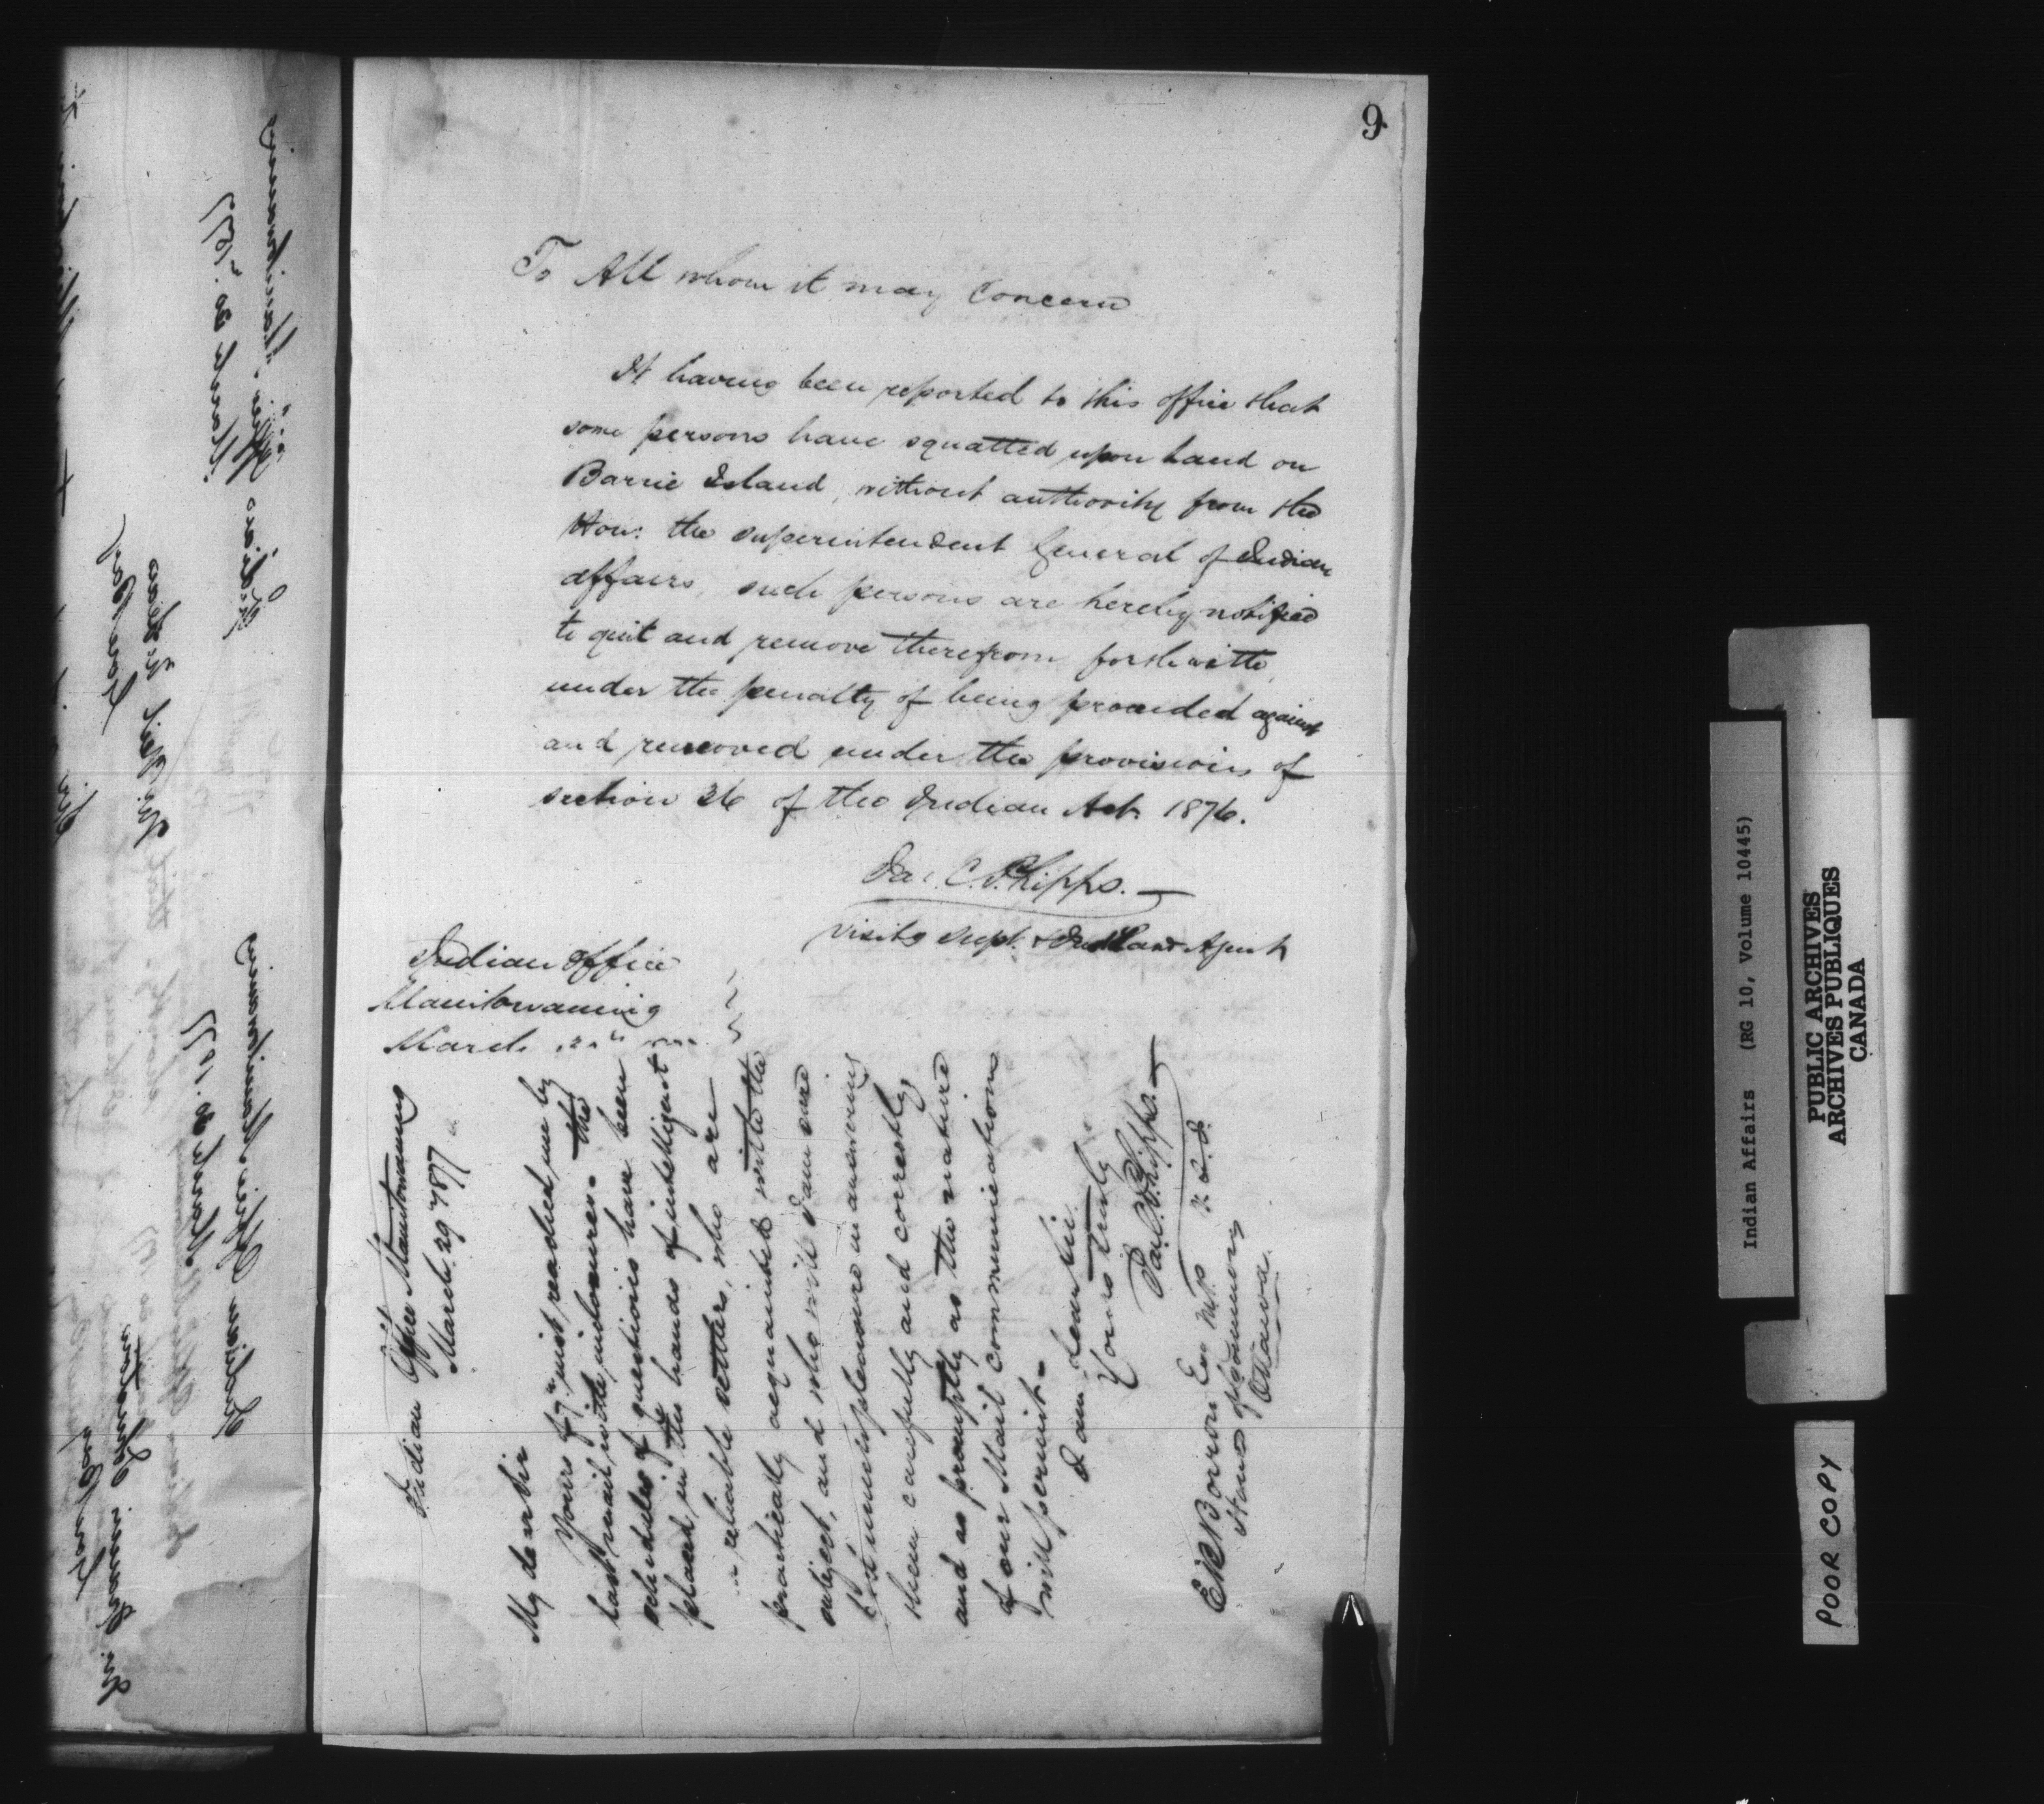 9
To All whom it may Concern
It having been reported to this office that
some persons have squatted upon land on
Barrie Island, without authority from the
Hon: the Superintendent General of Indian
affairs, such persons are hereby notified
to quit and remove therefrom forthwith,
under the penalty of being proceeded against
and removed under the provisions of
section 26 of the Indian Act. 1876.
Jas. C. Phipps.
Visitg Supt. & Ind Land Agent
Indian Office
Manitowaning
March
Indian Office Manitowaning
March 29th 1877
My dear Sir
Yours of 7th inst, reached me by
last mail with inclosures. The
schedules of questions have been
placed in the hands of intelligent
reliable settlers, who are
practically acquainted with the
subject, and who will I am sure
have much pleasure in answering
them carefully and correctly
and as promptly as the nature
of our Mail communications
will permit.
I am dear Sir
Yours truly
Jas. C. Phipps.
V. S. I.
E B Borron Esq M.P.
House of Commons
Ottawa.
Indian Office Manitowaning
March 20. 1877
Gore Bay
Indian Office Manitowaning
March 20. 1877
Gore Bay
Indian Affairs (RG 10, Volume 10445)
PUBLIC ARCHIVES
ARCHIVES PUBLIQUES
CANADA
POOR COPY